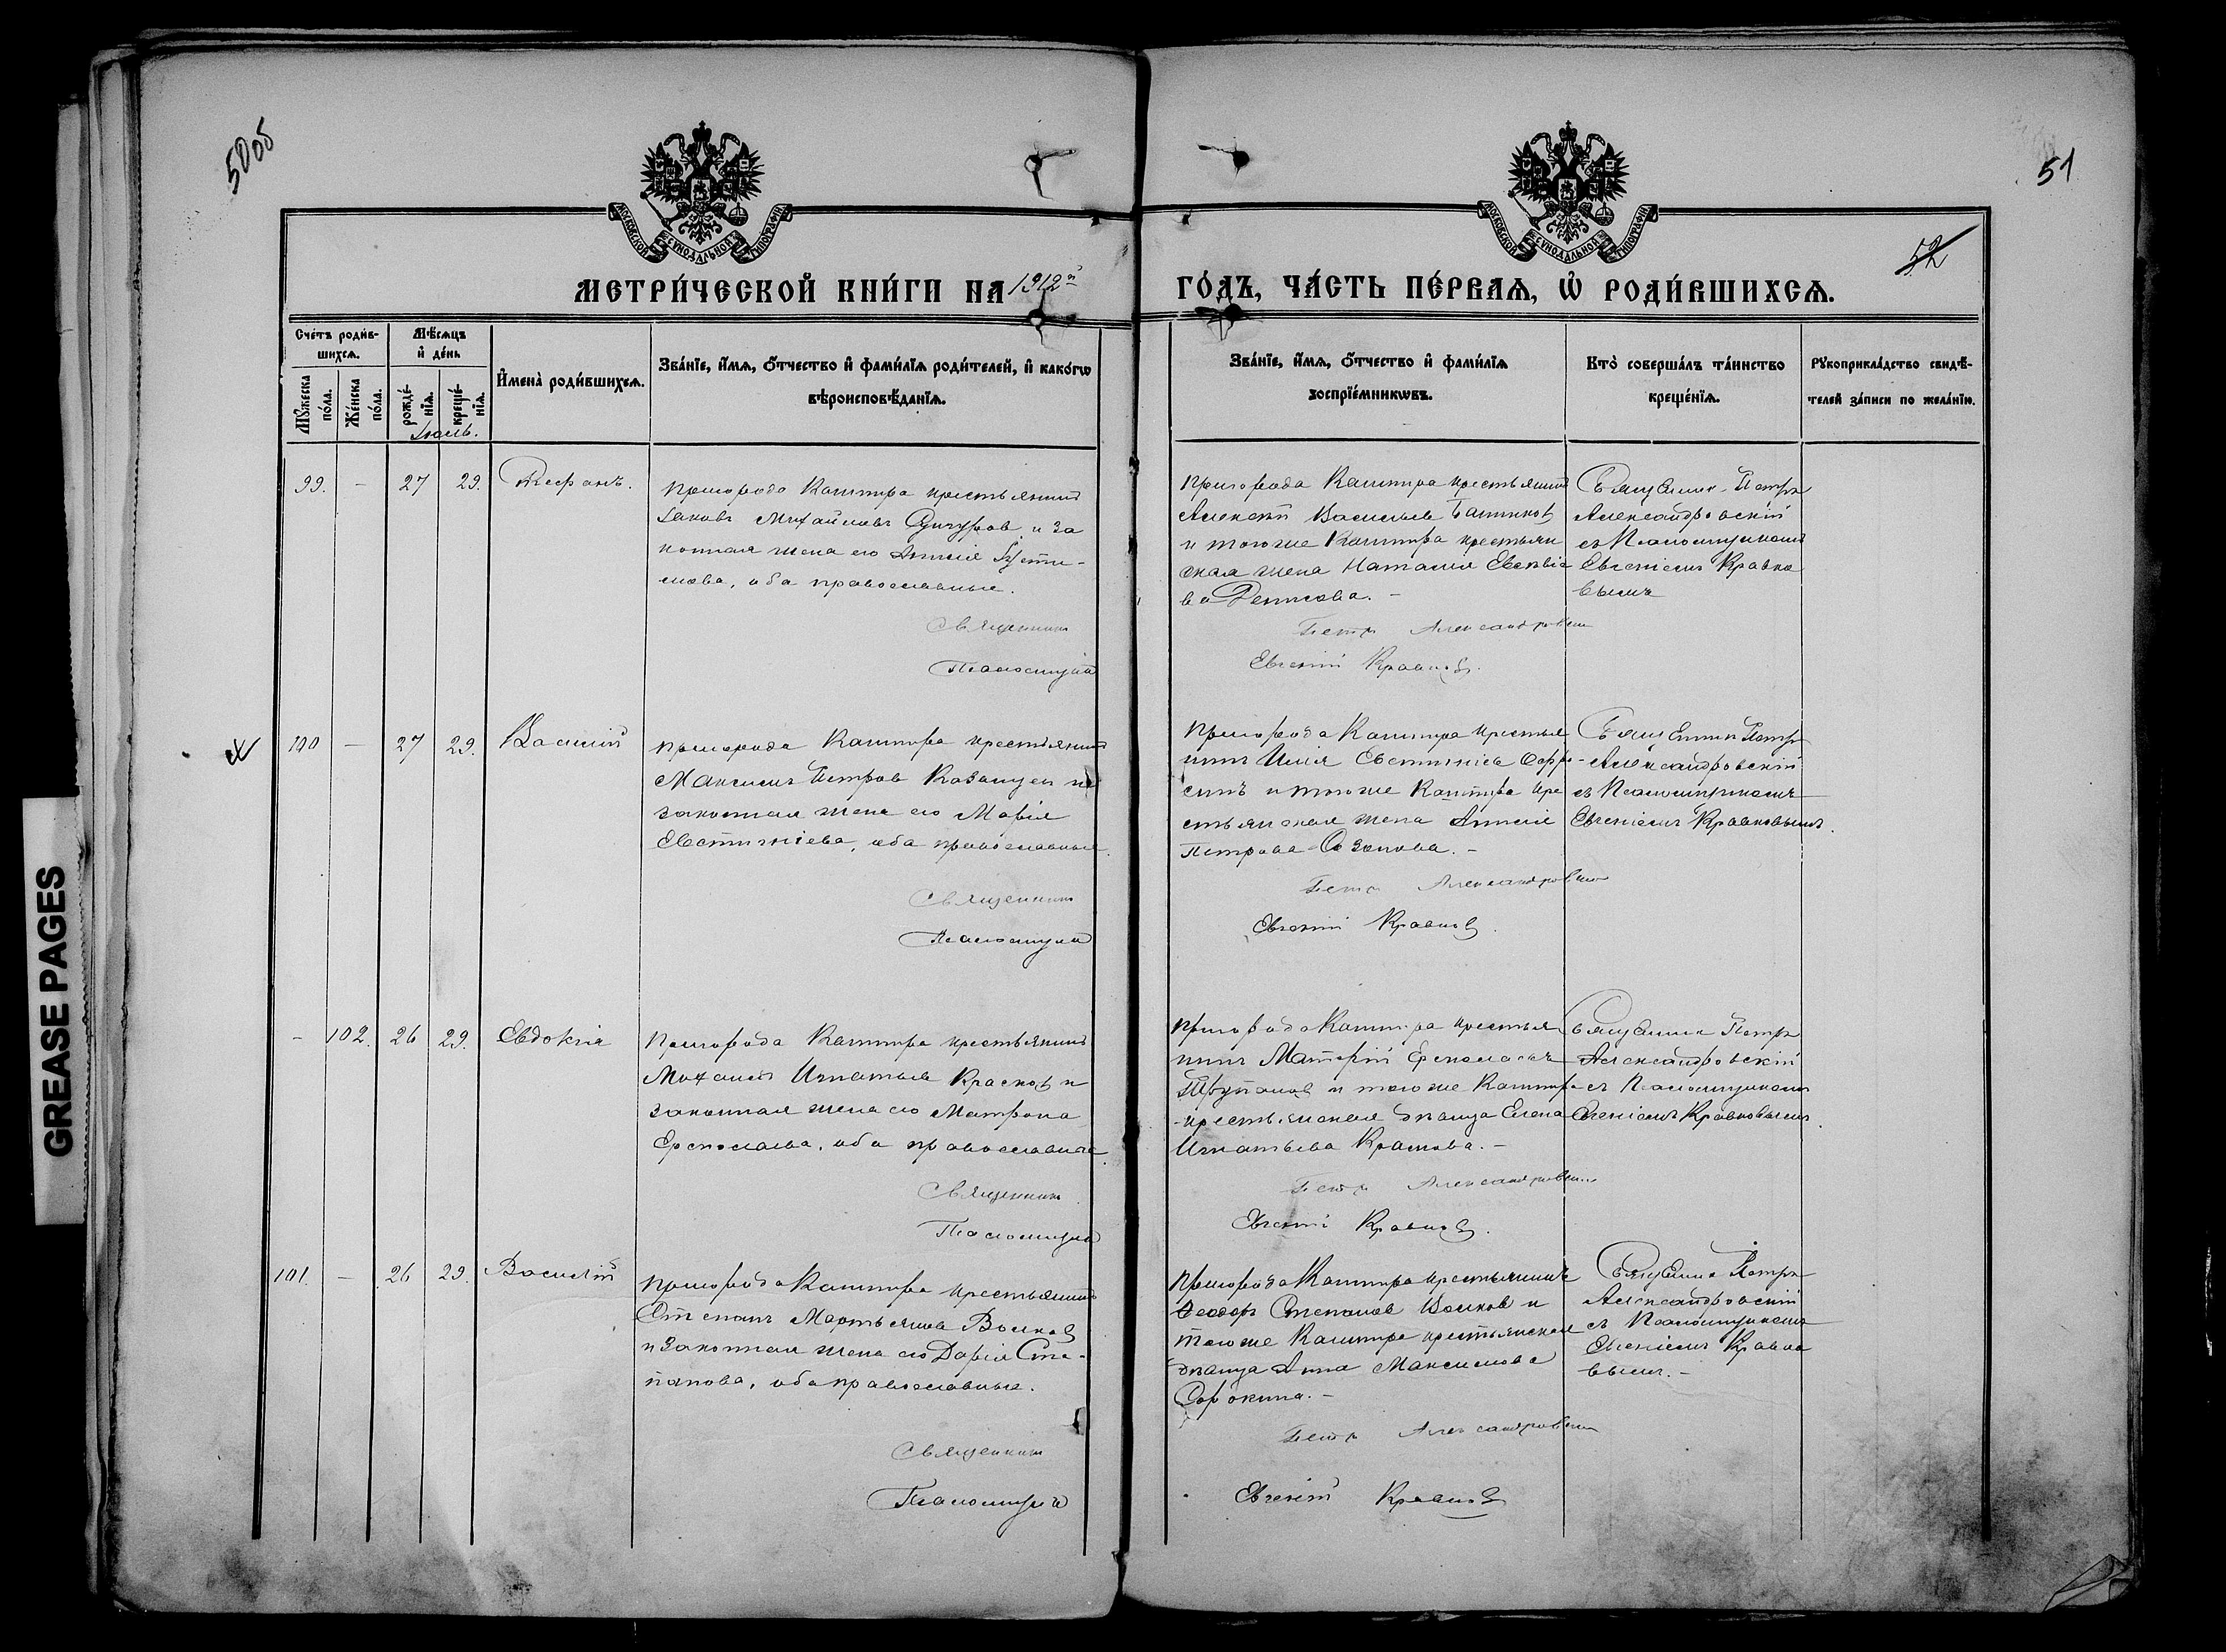 50об
51
52
МОСКОВСКОЙ СѴНОДАЛЬНОЙ ТИПОГРАФІИ
МОСКОВСКОЙ СѴНОДАЛЬНОЙ ТИПОГРАФІИ
МЕТРИ́ЧЕСКОЙ КНИ́ГИ НА 1912й ГО́ДЪ, ЧА́СТЬ ПЕ́РВАѦ, Ѽ РОДИ́ВШИХСѦ.
Сче́тъ роди́в-
шихсѧ.
Мꙋ́жеска по́ла.
Же́нска по́ла.
Мѣ́сѧцъ
и҆ де́нь
рожде́-нїѧ.
креще́-нїѧ.
Іюль.
И҆мена̀ роди́вшихсѧ.
Зва́нїе, и҆́мѧ, ѻ҆́тчество и҆ фами́лїѧ роди́телей, и҆ како́гѡ
вѣроисповѣ́данїѧ.
Зва́нїе, и҆́мѧ, ѻ҆́тчество и҆ фами́лїѧ
воспрїе́мникѡвъ.
Кто̀ соверша́лъ та́инство
креще́нїѧ.
Рꙋкоприкла́дство свидѣ́-
телей за́писи по жела́нїю.
99. — 27 29.
Пригорода Каштира крестьянинъ
Іаковъ Михайловъ и за
конная жена его Анисія Іусти-
нова, оба православные.
Священник
Псаломщикъ
Пригорода Каштира крестьянинъ
Алексѣй Васильев Башмаков
и того же Каштира крестьян
ская жена Наталия
ва Денисова. —
Петръ Александровский
Евгений Кравков.
Священник Петръ
Александровскій
съ Псаломщикомъ
Евгеніемъ Кравко
вымъ
100 — 27 29. Василій
Пригорода Каштира крестьянинъ
Максимъ Петров Казанцев и
законная жена его Марія
Евстигніева, оба православные.
Священник
Псаломщикъ
Пригорода Каштира крестья
нинъ Илія Евстигніев
синъ и того же Каштира кре
стьянская жена Анисія
Петрова —
Петръ Александровский
Евгений Кравков.
Священник Петръ
Александровскій
съ Псаломщикомъ
Евгеніемъ Кравковымъ.
— 102. 26 29. Евдокія
Пригорода Каштира крестьянинъ
Михаилъ Игнатьев Красков и
законная жена его Матрона
Ермолаева, оба православные.
Священник
Псаломщикъ
Пригорода Каштира крестья
нинъ Ермолаевъ
и того же Каштира
крестьянская дѣвица Елена
Игнатьева Краскова. —
Петръ Александровский
Евгений Кравков.
Священник Петръ
Александровскій
съ Псаломщикомъ
Евгеніемъ Кравковымъ.
101. — 26 29. Василій
Пригорода Каштира крестьянинъ
Стефанъ Мартьянов Волков
и законная жена его Дарія Сте-
панова, оба православные.
Священник
Псаломщикъ
Пригорода Каштира крестьянинъ
Ѳеодоръ Степанов Волков и
того же Каштира крестьянская
дѣвица Анна Максимова
Сорокина. —
Петръ Александровский
Евгений Кравков
Священник Петръ
Александровскій
съ Псаломщикомъ
Евгеніемъ Кравко
вымъ. —
GREASE PAGES